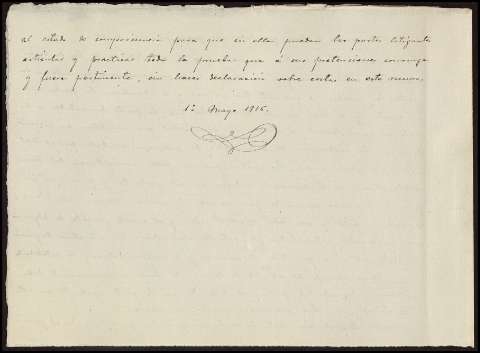 al estado de comparecencia para que en ella puedan las partes litigantes
articular y practicar toda la prueba que á sus pretenciones convenga
y fuere pertinente, sin hacer declaración sobre costas en este recurso.
1º Mayo 1916.